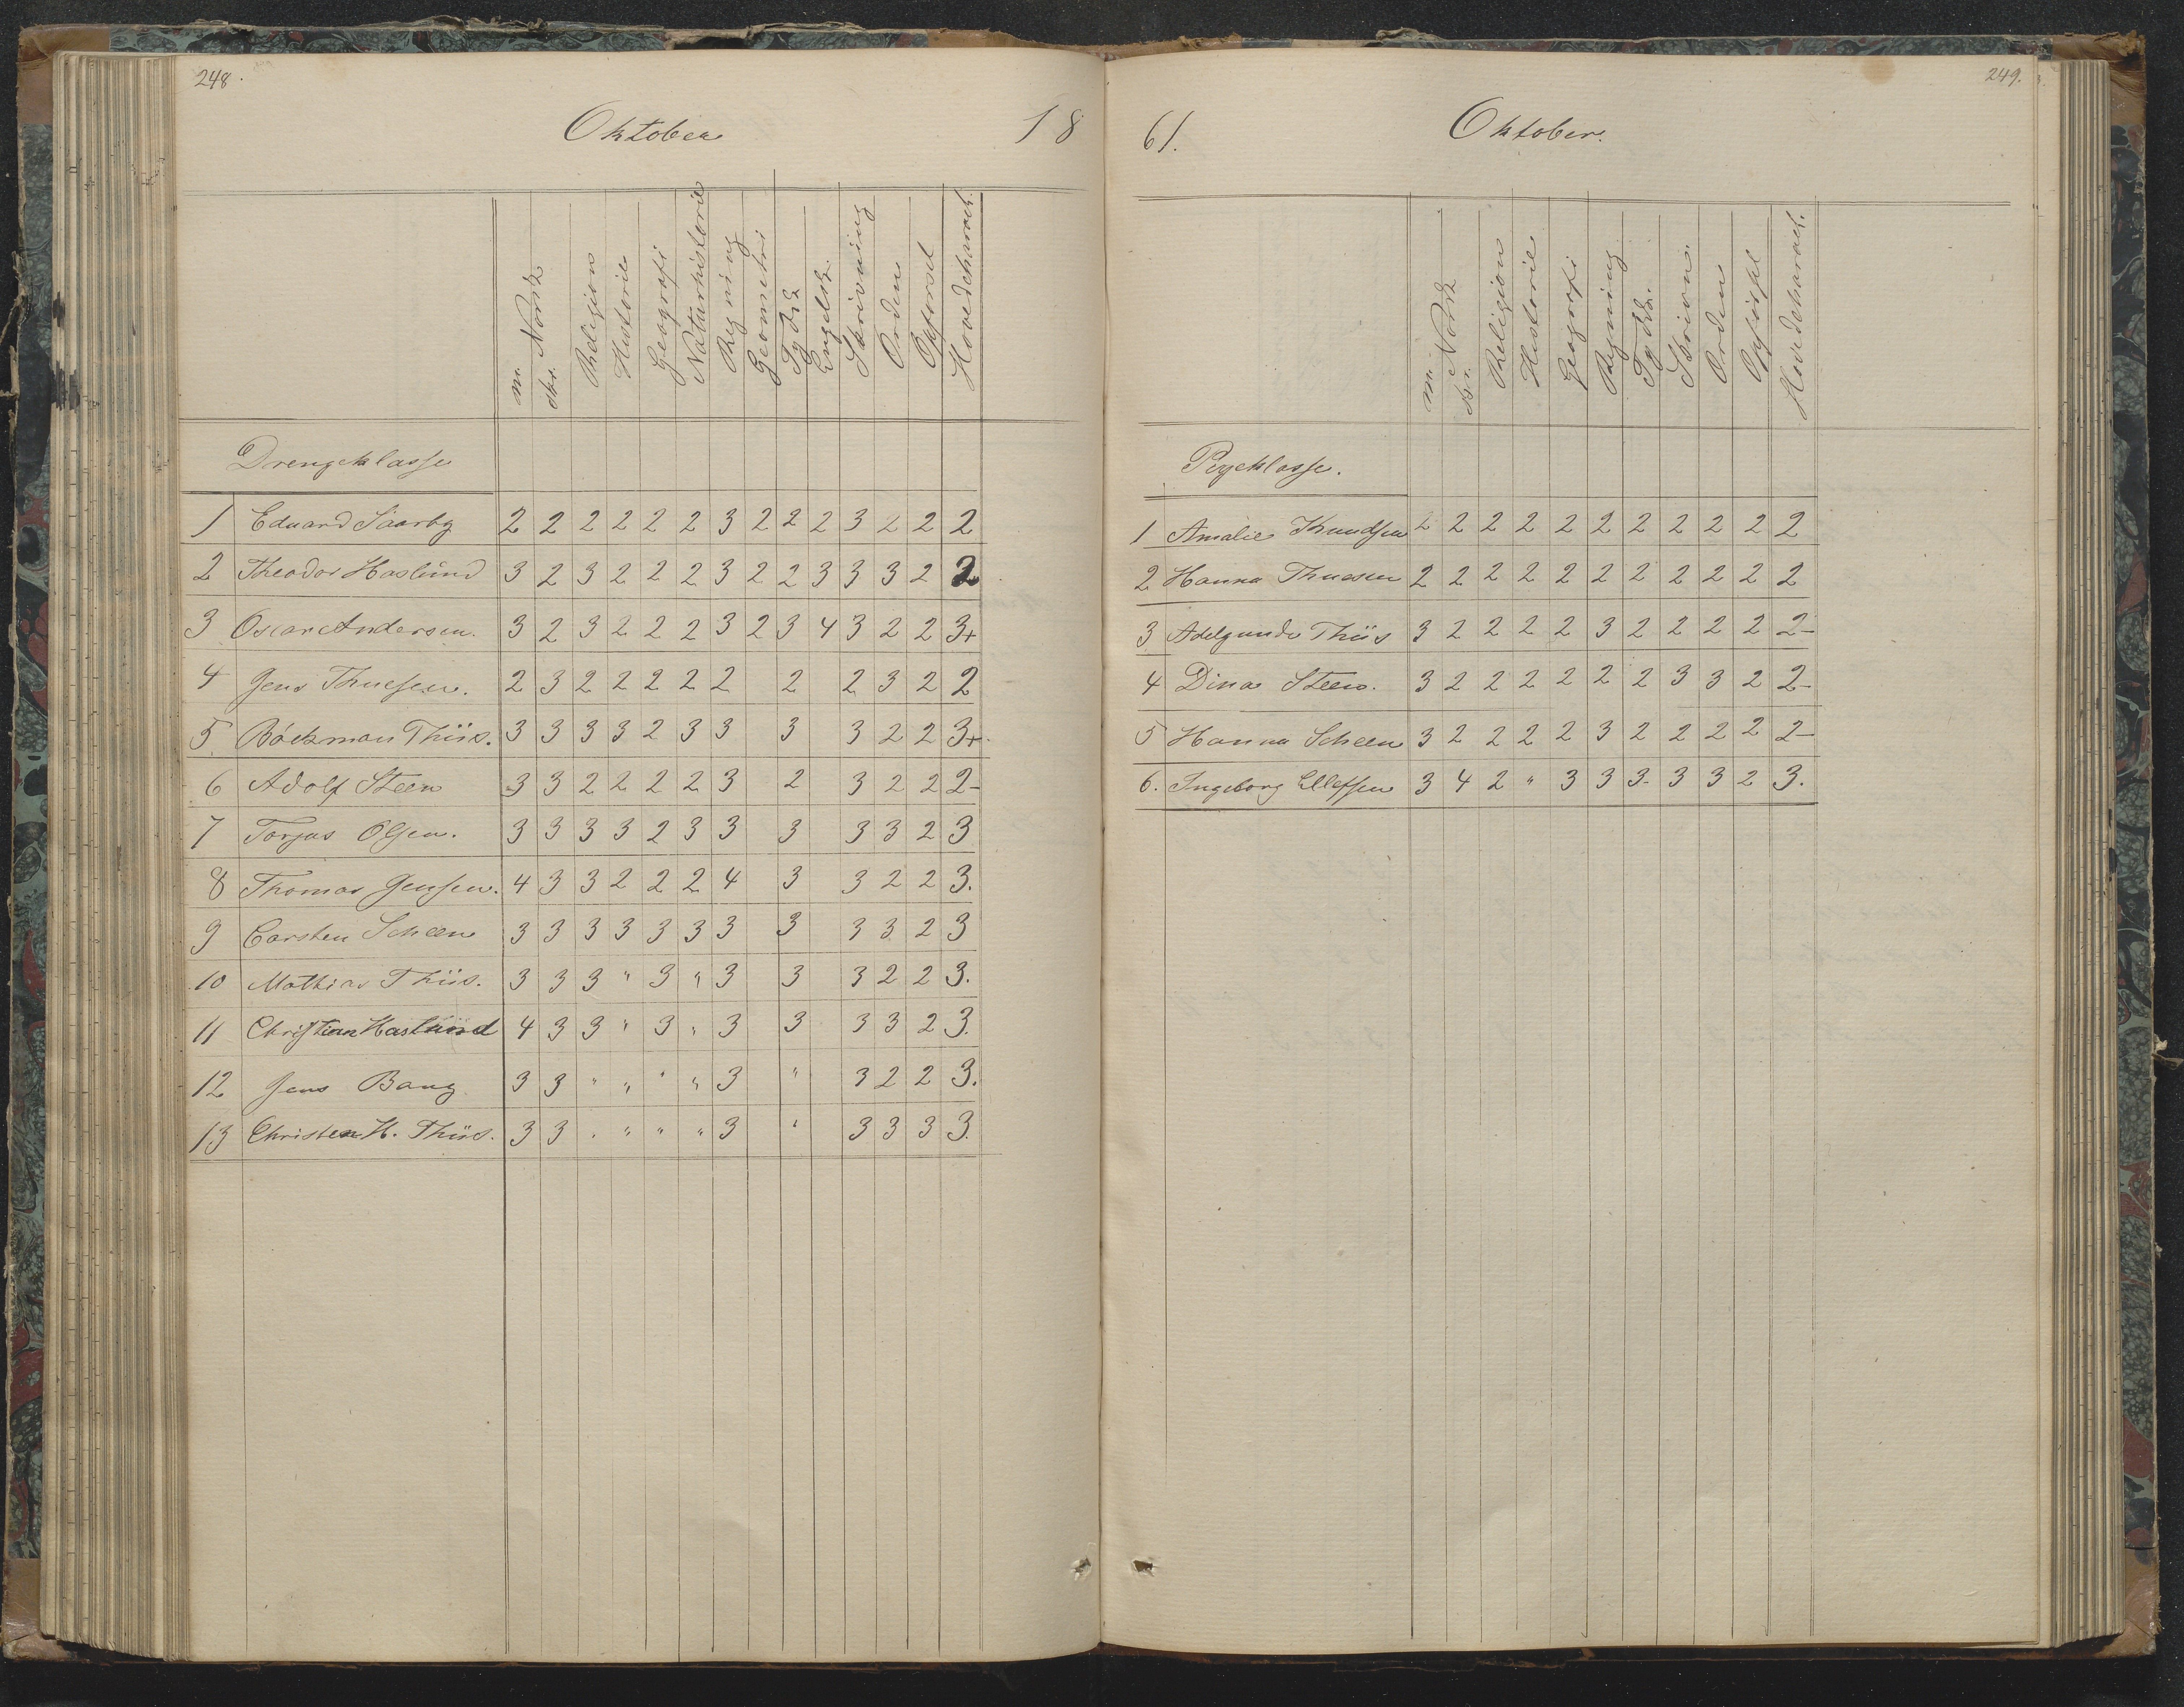 248.
Oktober 18
m. Norsk
skr.
Religion
Historie
Geografi
Naturhistorie
Regning
Geometri
Tydsk
Engelsk.
Skrivning
Orden
Opførsel
Hovedcharact.
Drengeklasse
1 Eduard Saarby 2 2 2 2 2 2 3 2 2 2 3 2 2 2
2 Theodor Haslund 3 2 3 2 2 2 3 2 2 3 3 3 2 2
3 Oscar Andersen. 3 2 3 2 2 2 3 2 3 4 3 2 2 3+
4 Jens Thuesen. 2 3 2 2 2 2 2 2 2 3 2 2
5 Böckman Thiis. 3 3 3 3 2 3 3 3 3 2 2 3+
6 Adolf Steen 3 3 2 2 2 2 3 2 3 2 2 2-
7 Torjus Olsen. 3 3 3 3 2 3 3 3 3 3 2 3
8 Thomas Jensen. 4 3 3 2 2 2 4 3 3 2 2 3.
9 Carsten Scheen 3 3 3 3 3 3 3 3 3 3 2 3
10 Mathias Thiis. 3 3 3 " 3 " 3 3 3 2 2 3.
11 Christian Haslund 4 3 3 " 3 " 3 3 3 3 2 3.
12 Jens Bang 3 3 " " " " 3 " 3 2 2 3.
13 Christen H. Thiis. 3 3 " " " " 3 " 3 3 3 3.
249.
61. Oktober.
m. Norsk
skr.
Religion
Historie
Geografi
Regning
Tydsk.
Skrivn.
Orden
Opførsel
Hovedcharact.
Pigeklasse.
1 Amalie Knudsen 2 2 2 2 2 2 2 2 2 2 2
2 Hanna Thuesen 2 2 2 2 2 2 2 2 2 2 2
3 Adelgunde Thiis 3 2 2 2 2 3 2 2 2 2 2-
4 Dina Steen. 3 2 2 2 2 2 2 3 3 2 2-
5 Hanna Scheen 3 2 2 2 2 3 2 2 2 2 2-
6. Ingeborg Ellefsen 3 4 2 " 3 3 3 3 3 2 3.